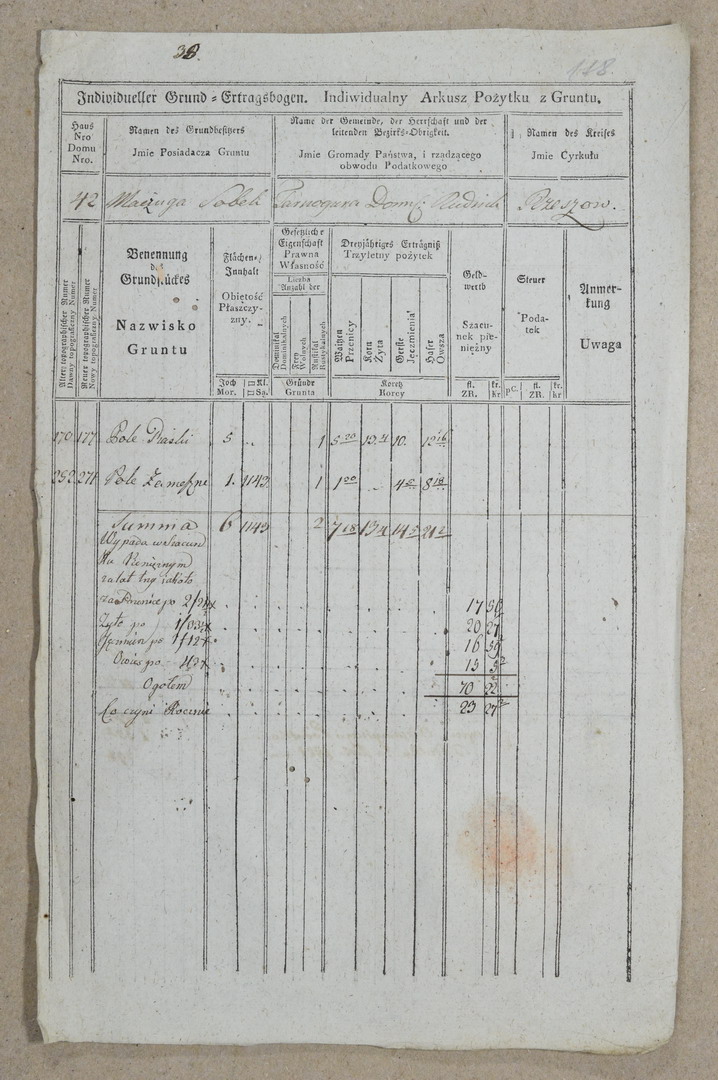 38.
118.
Individueller Grund = Ertragsbogen. Indiwidualny Arkusz Pożytku z Gruntu.
Haus Nro Domu Nro.
Namen des Grundbesitzers
Jmie Posiadacza Gruntu
Name der Gemeinde, der Herrschaft und der
leitenden Bezirks-Obrigkeit.
Jmie Gromady Państwa, i rządzącego
obwodu Podatkowego
Namen des Kreises
Jmie Cyrkułu
42 Maczuga Sobek Tarnogura Domi: Rudnik Rzeszow.
Alter topographischer Numer
Dawny topograficzny Numer
Neuer topographischer Numer
Nowy topograficzny Numer
Benennung
des
Grundstückes
Nazwisko
Gruntu
Flächen=
Innhalt
Obiętość
Płaszczy-
zny.
Joch
Mor.
□ Kl.
□ Są.
Gesetzliche
Eigenschaft
Prawna
Własność
Liczba
Anzahl der
Dominikal
Dominikalnych
Frey
Wolnych
Rustikal
Rustykalnych
Gründe
Grunta
Dreyjähriges Erträgniß
Trzyletny pożytek
Waitzen
Przenicy
Korn
Żyta
Gerste
Jęczmienia
Hafer
Owsza
Koretz
Korcy
Geld-
werth
Szacu-
nek pie-
niężny
fl.
ZR.
kr.
Kr
Steuer
Poda-
tek
pC.
fl.
ZR.
kr.
kr
Anmer-
kung
Uwaga
170 177 Pole Piaski 5 .. 1 5 20 13 4 10 13 16
252 271 Pole 1. 1143 1 1 30 .. 4 8 18
Summa 6 1143 2 7 18 13 4 14 21 2
Wypada w Szacun
ku Pienieznym
za Przenice po
Zyto po 20 27
po 1/12 x 16
Owies po
Ogołem 70 22
Co czyni Rocznie 23 27